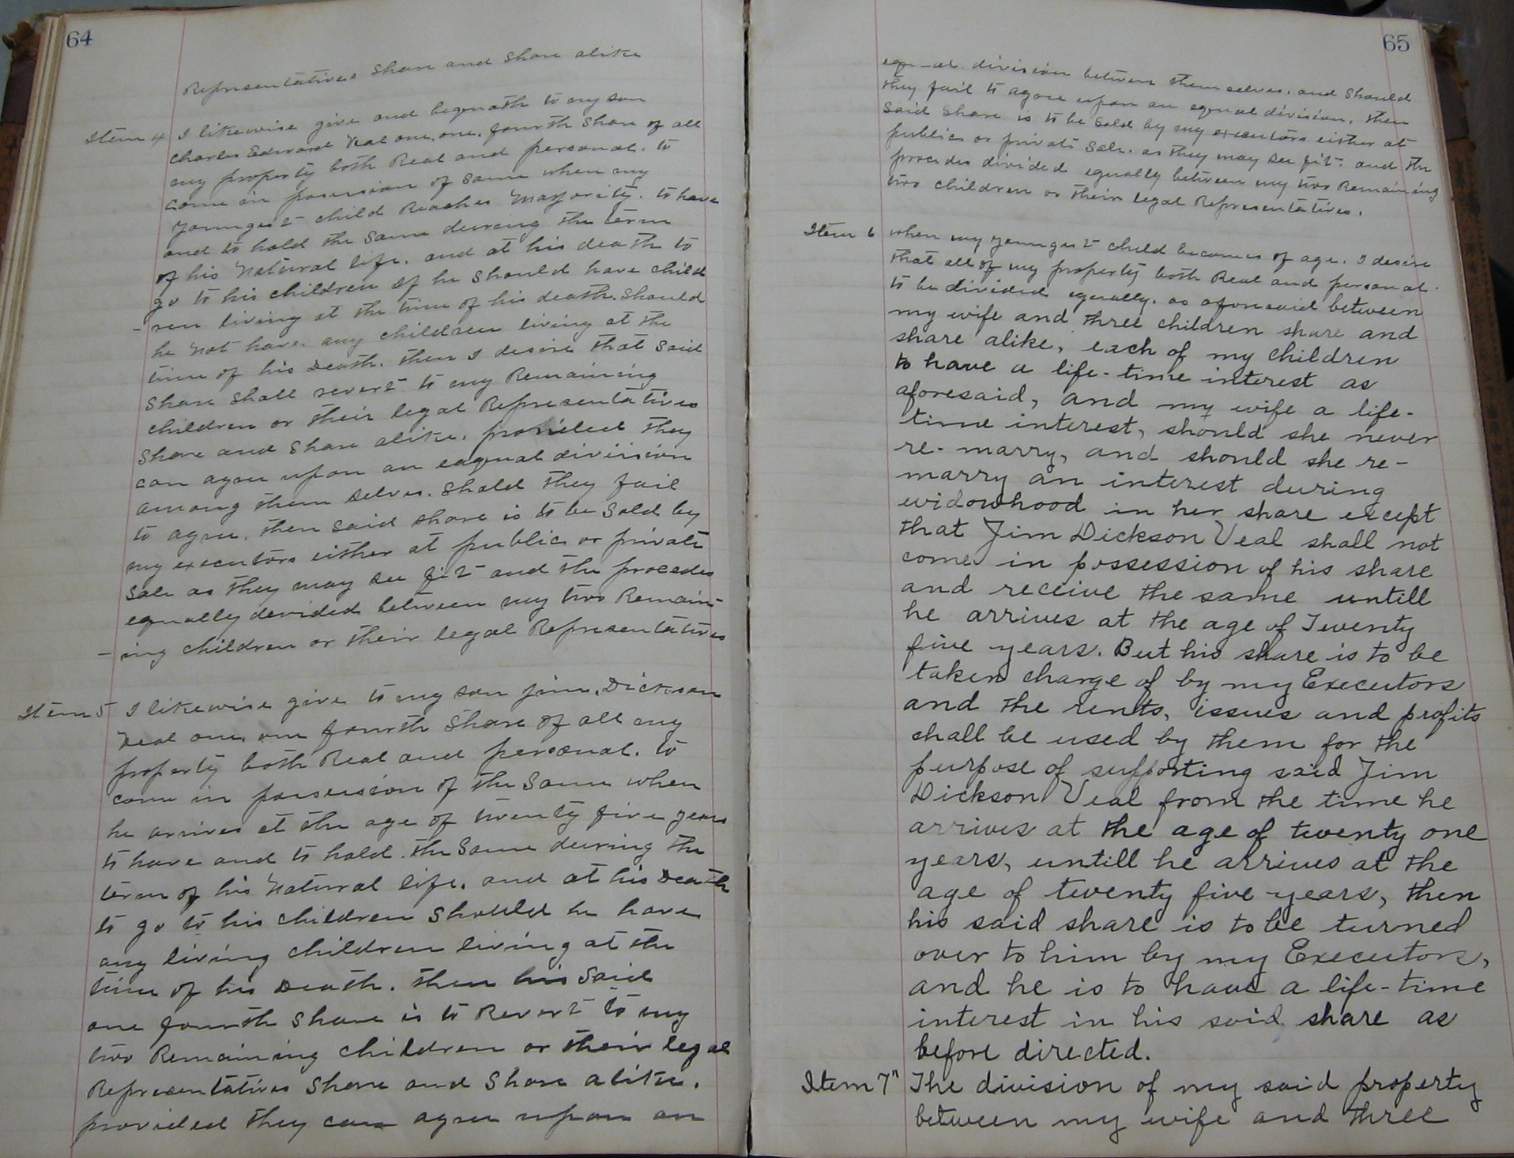 64
Representatives Share and Share alike
Item 4 I likewise give and bequath to my son
Charles Edward Veal one, one, fourth Share of all
my property both Real and personal. to
come in possession of same when my
youngest child Reaches Majority. to have
and to hold the same dureing the term
of his Natural life. and at his death to
go to his children if he should have child
-ren living at the time of his death. Should
he Not have any children living at the
time of his Death. then I desire that said
Share shall revert to my Remaining
children or their legal Representatives
Share and Share alike. provided they
can agree upon an eaqual diviision
among them selves. Shold they fail
to agree. then said share is to be Sold by
my executors either at public or private
Sale as they may see fit and the procedes
equally devided between my two Remain
-ing children or their legal Representatives
Item 5 I likewise give to my son Jim. Dickson
Veal one, one fourth Share of all my
property both Real and personal. to
come in possession of the Same when
he arrives at the age of twenty five years
to have and to hold. the Same dureing the
term of his Natural life. and at his Death
to go to his children Should he have
any living children living at the
time of his Death. then his Said
one fourth Share is to Revert to my
two Remaining children or their legal
Representatives Share and Share alike.
provided they can agree upon an
65
equ-al division between them selves. and Should
they fail to agree upon an equal division. then
Said Share is to be Sold by my executors either at
public or private Sale. as they may see fit. and the
procedes divided equally between my two Remaining
two children or their legal Representatives.
Item 6 when my youngest child becomes of age. I desire
that all of my property both Real and personal.
to be divided equally. as aforesaid between
my wife and three children share and
share alike, each of my children
to have a life-time interest as
aforesaid, and my wife a life-
time interest, should she never
re-marry, and should she re-
marry an interest during
widowhood in her share except
that Jim Dickson Veal shall not
come in possession of his share
and receive the same untill
he arrives at the age of Twenty
five years. But his share is to be
taken charge of by my Executors
and the rents, issues and profits
shall be used by them for the
purpose of supporting said Jim
Dickson Veal from the time he
arrives at the age of twenty one
years, untill he arrives at the
age of twenty five-years, then
his said share is to be turned
over to him by my Executors,
and he is to have a life-time
interest in his said share as
before directed.
Item 7" The division of my said property
between my wife and three